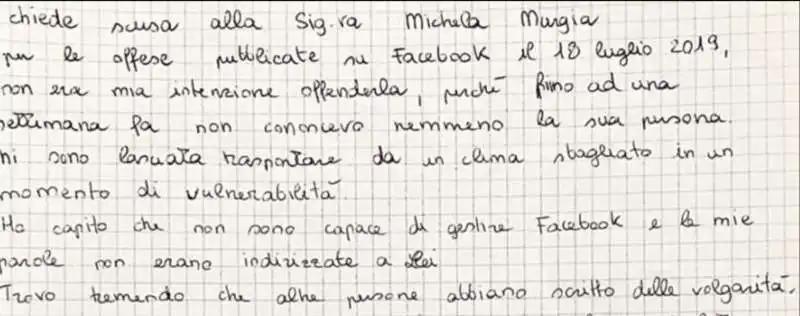 chiede scusa alla Sig.ra Michela Murgia
per le offese pubblicate su Facebook il 18 luglio 2019,
non era mia intenzione offenderla, perché fino ad una
settimana fa non conoscevo nemmeno la sua persona.
mi sono lasciata trasportare da un clima sbagliato in un
momento di vulnerabilità.
Ho capito che non sono capace di gestire Facebook e le mie
parole non erano indirizzate a Lei
Trovo tremendo che altre persone abbiano scritto delle volgarità,